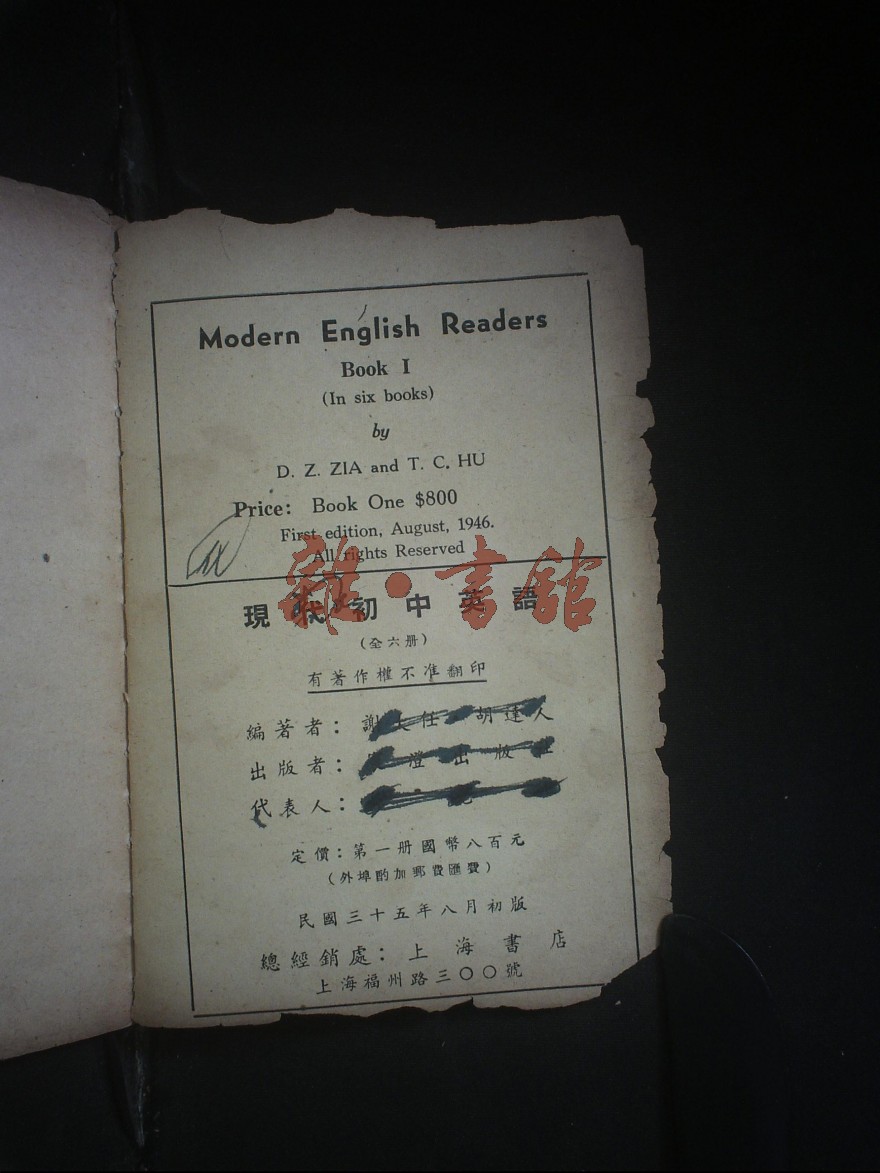 Modern English Readers
Book I
(In six books)
by
D. Z. ZIA and T. C. HU
Price: Book One $800
First edition, August, 1946.
All rights Reserved
雜·書館
現代初中英語
(全六册)
有著作權不准翻印
編著者：謝 任 胡達人
出版者： 澄出版社
代表人：
定價：第一册國幣八百元
(外埠酌加郵費匯費)
民國三十五年八月初版
總經銷處：上海書店
上海福州路三〇〇號